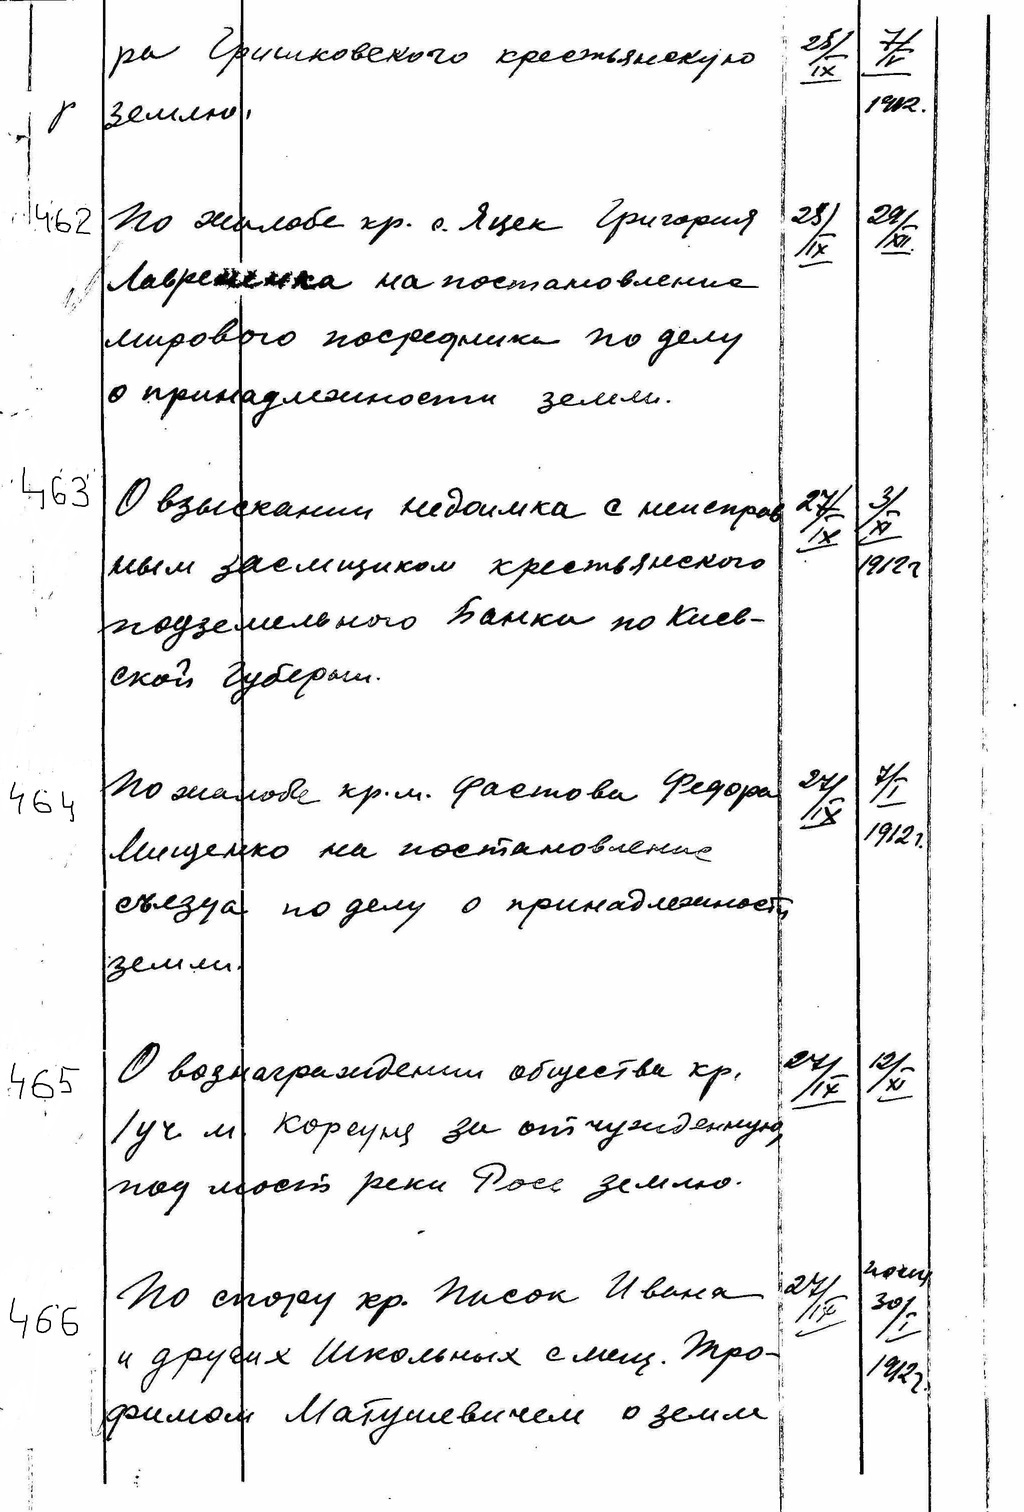 ра Гришковского крестьянскую 28/IX 7/V
землю. 1912.
462 По жалобе кр. с. Яцек Григория 28/IX 29/XII
Лавренка на постановление
мирового посредника по делу
о принадлежности земли.
463 О взыскании недоимка с неисправ 27/IX 3/XI
ным заемщиком крестьянского 1912г
подземельного Банка по Киев-
ской Губернии.
464 По жалобе кр. м. Фастова Федора 27/IX 7/I
Мищенко на постановление 1912г.
съезда по делу о принадлежности
земли.
465 О вознаграждении общества кр. 27/IX 12/XI
1 уч. м. Корсуня за отчужденную
под мост реки Рось землю.
466 По спору кр. Писок Ивана 27/IX 30/I
и других Школьных с мещ. Тро- 1912г.
фимом Матушевичем о земле